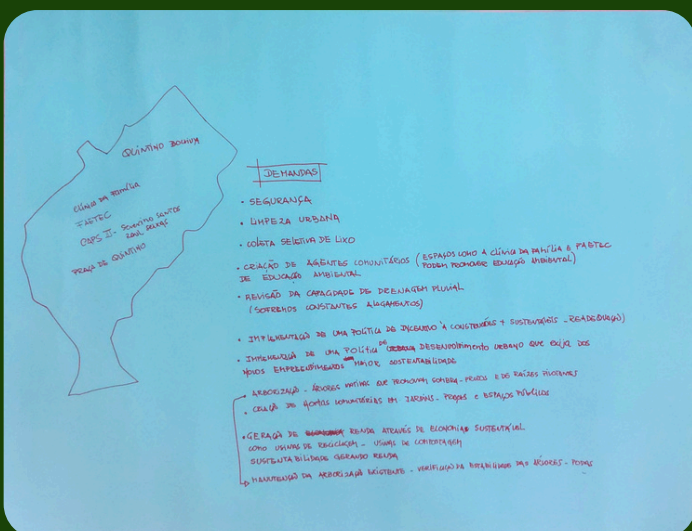 QUINTINO BOCAIUVA
CLÍNICA DA FAMÍLIA
FAETEC
CAPS II - SEVERINO SANTOS
PRAÇA DE QUINTINO
DEMANDAS
• SEGURANÇA
• LIMPEZA URBANA
• COLETA SELETIVA DE LIXO
• CRIAÇÃO DE AGENTES COMUNITÁRIOS (ESPAÇOS COMO A CLÍNICA DA FAMÍLIA E FAETEC
DE EDUCAÇÃO AMBIENTAL PODEM PROMOVER EDUCAÇÃO AMBIENTAL)
• REVISÃO DA CAPACIDADE DE DRENAGEM PLUVIAL
(SOFREMOS CONSTANTES ALAGAMENTOS)
• IMPLEMENTAÇÃO DE UMA POLÍTICA DE INCENTIVO À CONSTRUÇÕES + SUSTENTÁVEIS - READEQUAÇÃO)
• IMPLEMENTAÇÃO DE UMA POLÍTICA DE DESENVOLVIMENTO URBANO QUE EXIJA DOS
NOVOS EMPREENDIMENTOS MAIOR SUSTENTABILIDADE
• ARBORIZAÇÃO - ÁRVORES NATIVAS QUE PROMOVAM SOMBRA - FRUTOS E DE RAÍZES PIVOTANTES
• CRIAÇÃO DE HORTAS COMUNITÁRIAS EM JARDINS - PRAÇAS E ESPAÇOS PÚBLICOS
• GERAÇÃO DE RENDA ATRAVÉS DE ECONOMIA SUSTENTÁVEL
COMO USINAS DE RECICLAGEM - USINAS DE COMPOSTAGEM
SUSTENTABILIDADE GERANDO RENDA
MANUTENÇÃO DA ARBORIZAÇÃO EXISTENTE - VERIFICAÇÃO DA ESTABILIDADE DAS ÁRVORES - PODAS